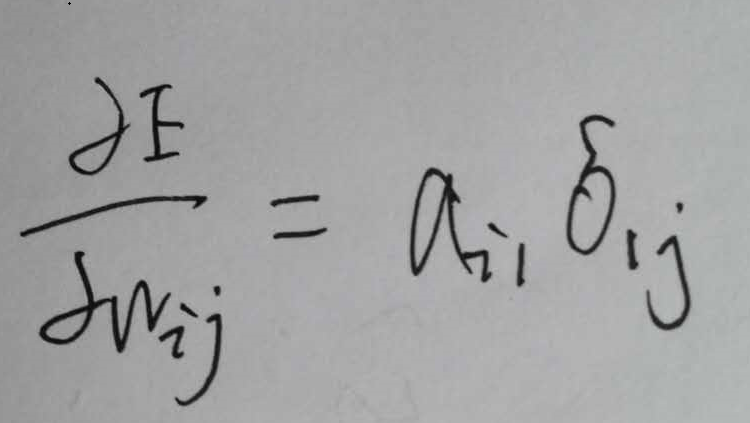 ∂E/∂w_{ij} = a_{i1} δ_{1j}